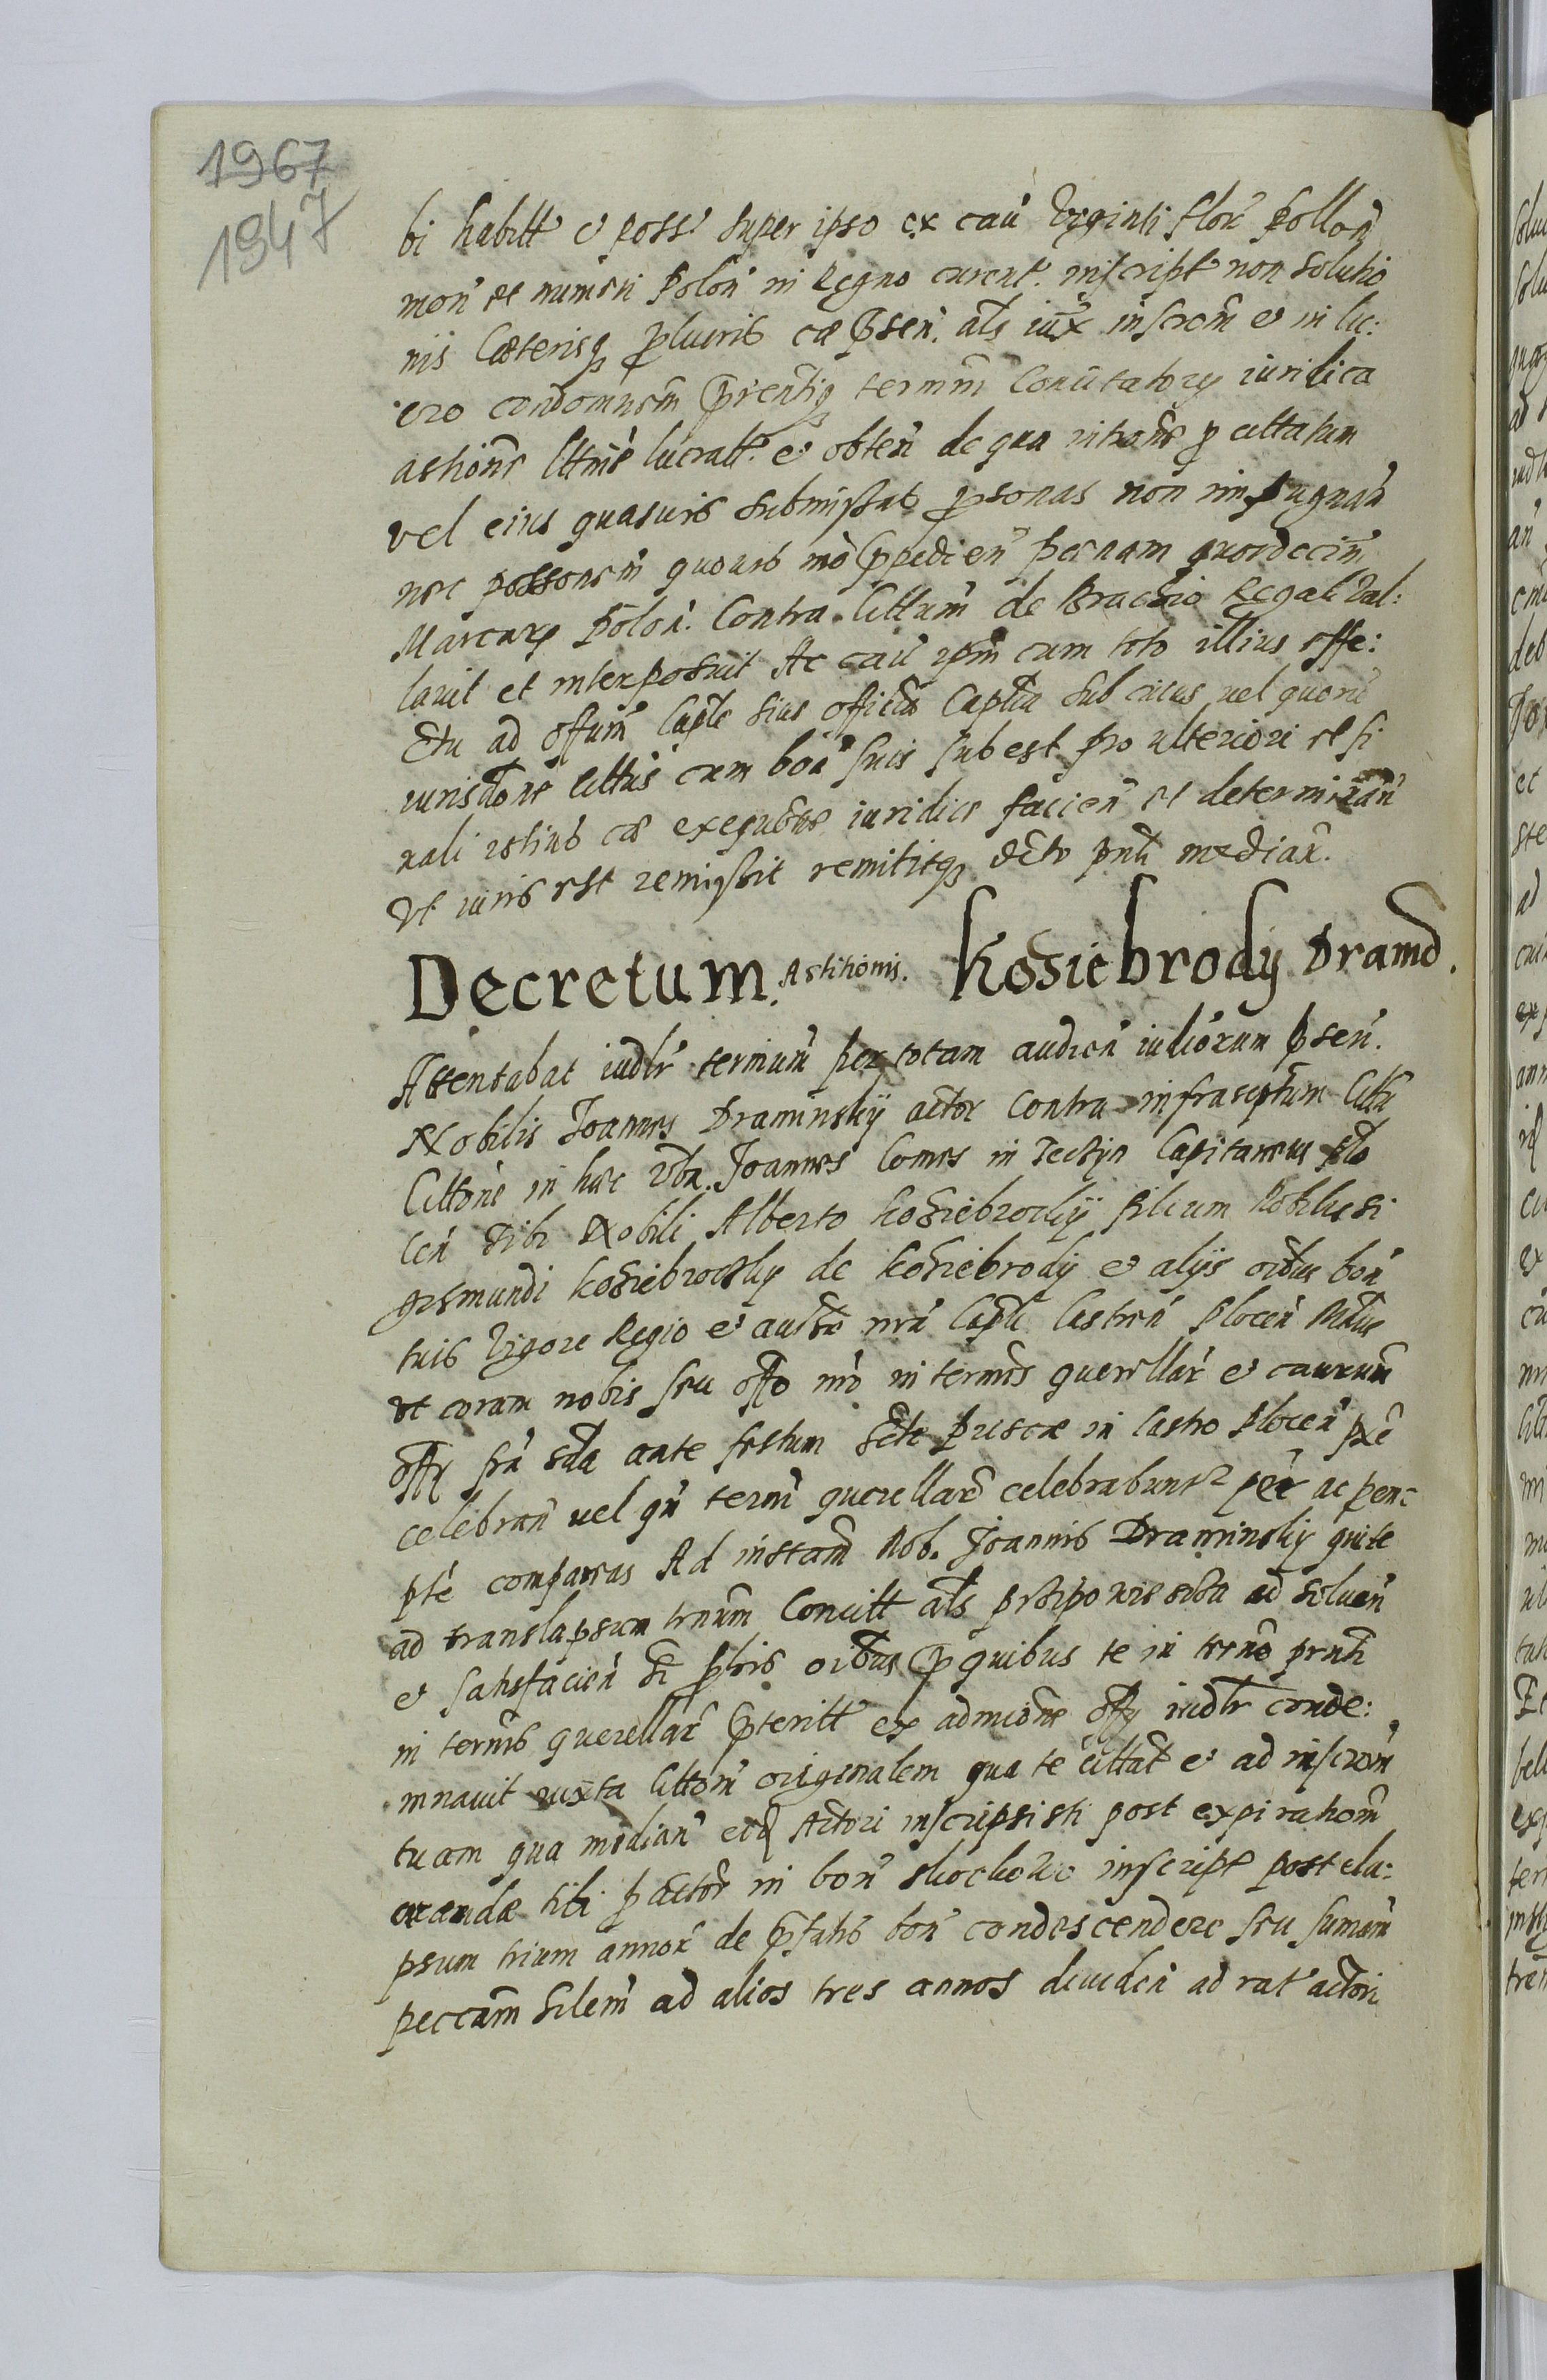 1967
1947
bi habitt et poss super ipso ex cau Viginti flor Pollon
mon et numeri Polon in Regno curent. inscript non solutio
nis Cæterisq pluris cæ psen. als iux inscrom et in lu:
cro condemnem prentiq termin Concitatory iuridica
astitione lttme lucratt. et obten de qua introne p cittatum
vel eius quasuis submissas psonas non impugnan
nec possonem quouis mo ppedien poenam quordecim
Marcarz Polon. Contra Cittum de Brachio Regali Val:
lauit et interposuit Ac cau ipm cum toto illius effe:
ctu ad offum Caple siue officia Caplia sub cuius vel quoru
iurisdone cittus cum bon suis subest pro ulteriori et fi
nali istius cæ exequtne iuridice facien et determinan
Vt iuris est remissit remititq dcto pnti median.
Decretum. Astitionis. Kosiebrody Dramo.
Attentabat iudlr terminu per totam audien iudiorum psen.
Nobilis Joannes Draminsky actor Contra infrascptum Cittu
Cittone in hæc vba. Joannes Comes in Teczyn Capitaneus Plo
cen Tibi Nobili Alberto Kosiebrodsky filium Nobilis Si
gismundi Kosiebrodsky de Kosiebrody et alijs oibus bon
tuis Vigore Regio et aucte nra Capli Castren Plocen Mdus
ut coram nobis seu offo nro in termis querellar et causarum
offy fra scda ante festum Scte Priscæ in Castro Plocen pxe
celebran vel qn termi querellar celebrabuntr per ac perem
pte compareas Ad instam Nob. Joannis Draminsky qui te
ad translapsum trnum Concitt als przipowiescia ad soluen
et satisfacien de pbris oibus p quibus te in trno prnti
in termis querellar pteritt ex admione offy iudlr conde:
mnauit iuxta Cittom originalem qua te cittat et ad inscrom
tuam qua median eid Actori inscripsisti post expirationem
arandæ tibi p actor in bon inscript post ela:
psum trium annor de pfatis bon condescendere seu summam
peccam silem ad alios tres annos diuiden ad rat actori